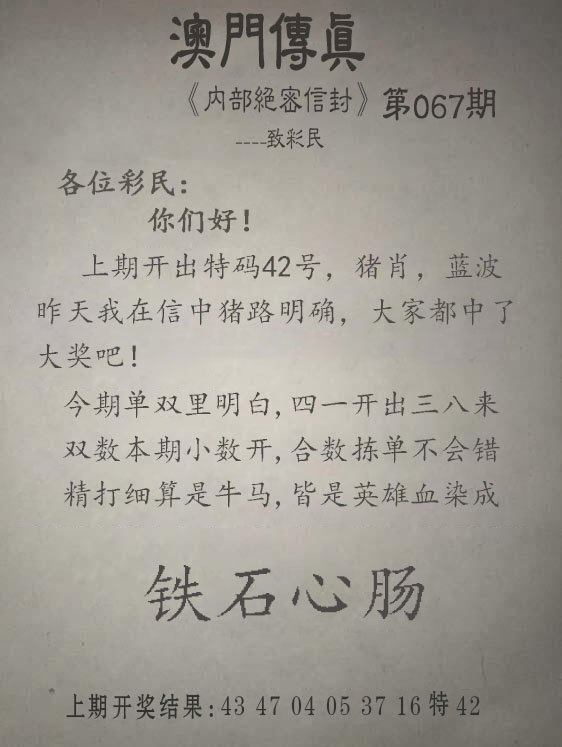 澳門傳真
《内部絕密信封》第067期
----致彩民
各位彩民：
你们好！
上期开出特码42号，猪肖，蓝波
昨天我在信中猪路明确，大家都中了
大奖吧！
今期单双里明白,四一开出三八来
双数本期小数开,合数拣单不会错
精打细算是牛马,皆是英雄血染成
铁石心肠
上期开奖结果:43 47 04 05 37 16特42